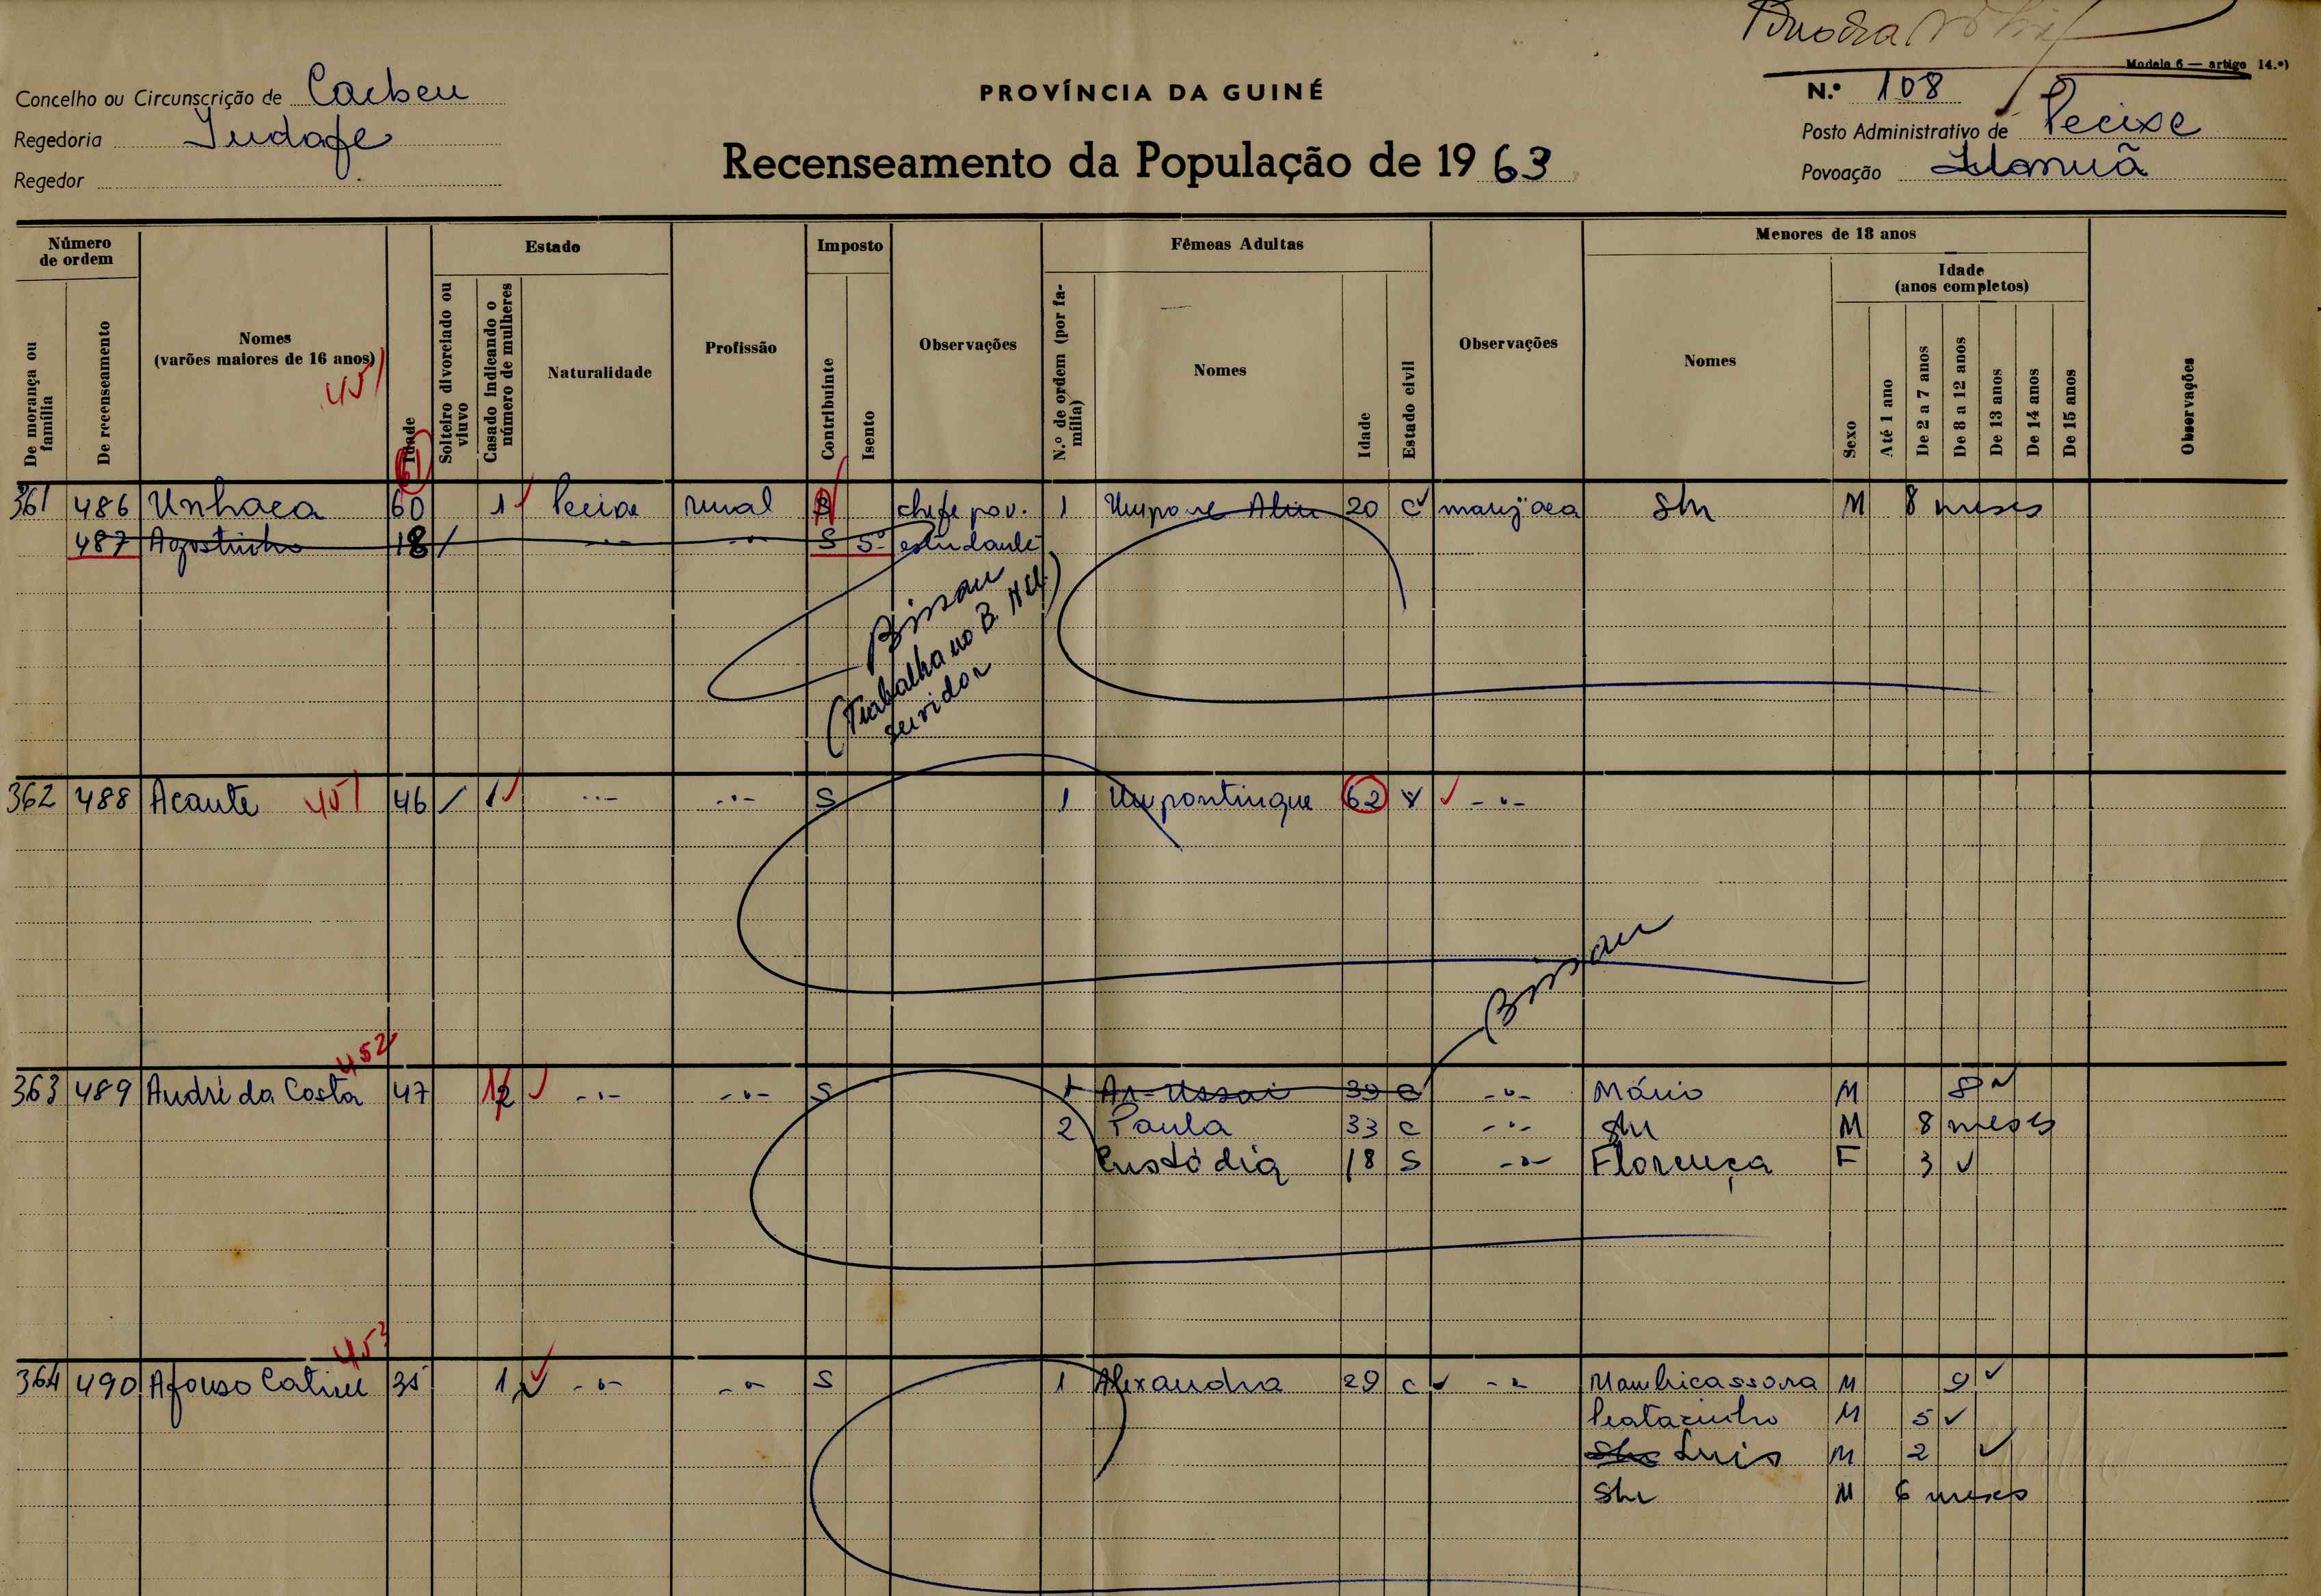 Modelo 6 — artigo 14.º)
Concelho ou Circunscrição de Cacheu
PROVÍNCIA DA GUINÉ
N.º 108
Regedoria
Recenseamento da População de 1963
Posto Administrativo de Pecixe
Regedor
Povoação
Número de ordem
Estado
Imposto
Fêmeas Adultas
Menores de 18 anos
De morança ou família
De recenseamento
Nomes
(varões maiores de 16 anos)
451
Idade
61
Solteiro divorciado ou viuvo
Casado indicando o número de mulheres
Naturalidade
Profissão
Contribuinte
Isento
Observações
N.º de ordem (por família)
Nomes
Idade
Estado civil
Observações
Nomes
Sexo
Idade
(anos completos)
Até 1 ano
De 2 a 7 anos
De 8 a 12 anos
De 13 anos
De 14 anos
De 15 anos
Observações
361 486 Unhaca 60 1 Pecixe rural S chefe pov. 1 20 C manjaca Sn M 8 meses
487 Agostinho 18 / -"- -"- S S estudante
Bissau
(Trabalha no B. N.U.)
servidor
362 488 Acante 451 46 / 1 -"- -"- S 1 Umpontinque 62 V -"-
Bissau
452
363 489 André da Costa 47 2 -"- -"- S 1 An-Ussai 39 C -"- Mário M 8
2 Paula 33 C -"- Sn M 8 meses
Custódia 18 S -"- Florença F 3
453
364 490 Afonso 35 1 -"- -"- S 1 Alexandra 29 C -"- Mambicassora M 9
M 5
Luis M 2
Sn M 6 meses